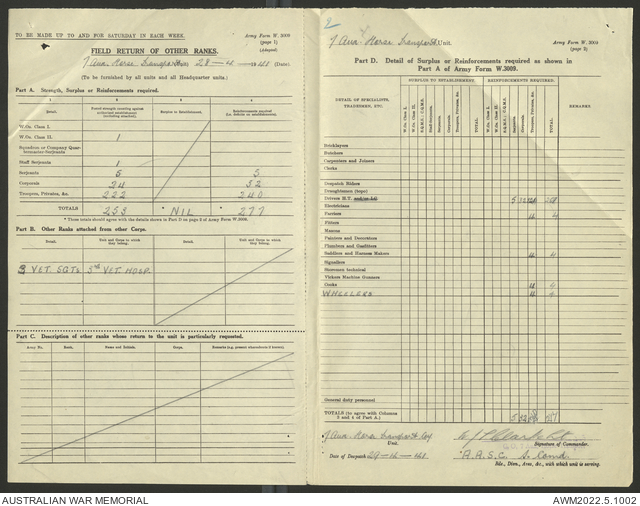 TO BE MADE UP TO AND FOR SATURDAY IN EACH WEEK.
Army Form W. 3009
(page 1)
(Adapted)
FIELD RETURN OF OTHER RANKS.
(To be furnished by all units and all Headquarter units.)
Part A. Strength, Surplus or Reinforcements required.
1 2 3 4
Detail. Posted strength counting against authorized establishment (excluding attached). Surplus to Establishment. Reinforcements required (i.e. deficits on establishment).
W.Os. Class I.
W.Os. Class II. 1
Squadron or Company Quartermaster-Serjeants
Staff Serjeants 1
Serjeants 5 5
Corporals 24 32
Troopers, Privates, &c. 222 240
TOTALS 253 * NIL * 277
* These totals should agree with the details shown in Part D on page 2 of Army Form W.3009.
Part B. Other Ranks attached from other Corps.
Detail. Unit and Corps to which they belong. Detail. Unit and Corps to which they belong.
3 VET. SGTS. VET. HOSP.
Part C. Description of other ranks whose return to the unit is particularly requested.
Army No. Rank. Name and Initials. Corps. Remarks (e.g. present whereabouts if known).
2
Horse Transport Unit.
Army Form W. 3009
(page 2)
Part D. Detail of Surplus or Reinforcements required as shown in
Part A of Army Form W.3009.
SURPLUS TO ESTABLISHMENT. REINFORCEMENTS REQUIRED.
DETAIL OF SPECIALISTS, TRADESMEN, ETC.
W.Os. Class I. W.Os. Class II. S.Q.M.S. / C.Q.M.S. Staff-Serjeants. Serjeants. Corporals. Troopers, Privates, &c. TOTAL.
W.Os. Class I. W.Os. Class II. S.Q.M.S. / C.Q.M.S. Serjeants. Corporals. Troopers, Privates, &c. TOTAL.
REMARKS
Bricklayers
Butchers
Carpenters and Joiners
Clerks
Despatch Riders
Draughtsmen (topo)
Drivers H.T.
Electricians
Farriers 4 4
Fitters
Masons
Painters and Decorators
Plumbers and Gasfitters
Saddlers and Harness Makers 4 4
Signallers
Storemen technical
Vickers Machine Gunners
Cooks 4 4
WHEELERS 4 4
General duty personnel
TOTALS (to agree with Columns
3 and 4 of Part A.)
Horse Transport Coy
Unit.
Signature of Commander.
Date of Despatch
A.A.S.C. S. Comd.
Bde., Divn., Area, &c., with which unit is serving.
AUSTRALIAN WAR MEMORIAL
AWM2022.5.1002